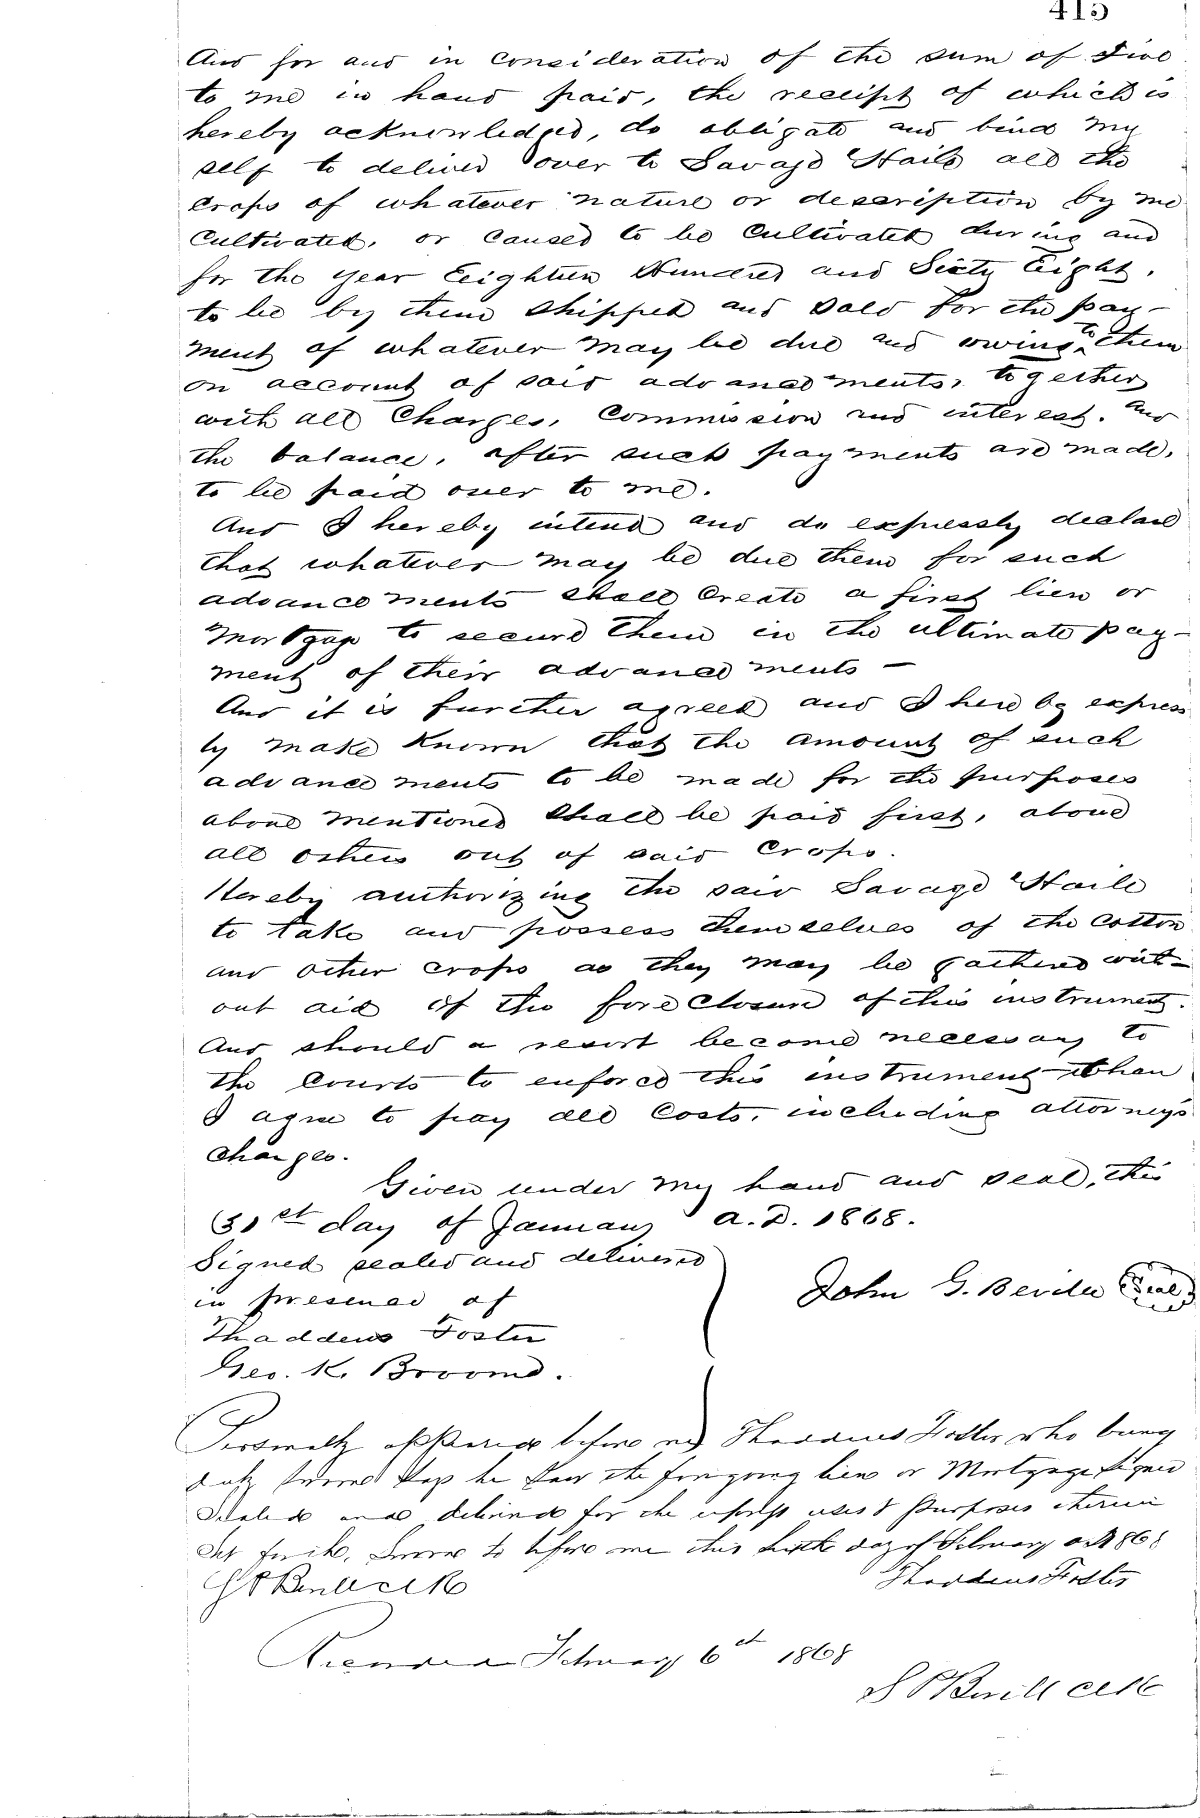 415
And for and in consideration of the sum of Five
to me in hand paid, the receipt of which is
hereby acknowledged, do obligate and bind my
self to deliver over to Savage Haile all the
crops of whatever nature or description by me
Cultivated, or caused to be Cultivated during and
for the year Eighteen Hundred and Sixty Eight,
to be by them shipped and sold for the pay-
ment of whatever may be due and owing to them
on account of said advancements, together
with all Charges, Commission and interest. And
the balance, after such payments are made,
to be paid over to me.
And I hereby intend and do expressly declare
that whatever may be due them for such
advancements shall Create a first lien or
Mortgage to secure them in the ultimate pay-
ment of their advancements -
And it is further agreed and I hereby express
ly make Known that the amount of such
advancements to be made for the purposes
above mentioned shall be paid first, above
all others out of said Crops.
Hereby authorizing the said Savage Haile
to take and possess themselves of the Cotton
and other crops as they may be gathered with-
out aid of the foreclosure of this instrument.
And should a resort become necessary to
the Courts to enforce this instrument than
I agree to pay all Costs, including attorney's
Charges.
Given under my hand and seal, this
31st day of January A.D. 1868.
Signed sealed and delivered
in presence of
John G. Bevill Seal
Thaddeus Foster
Geo. K. Broome.
Personally appeared before me Thaddeus Foster who being
duly sworn says he saw the foregoing lien or Mortgage Signed
Sealed and delivered for the uses & purposes therein
Set forth. Sworn to before me this sixth day of February AD 1868
S P Bevill Clk
Thaddeus Foster
Recorded February 6th 1868
S P Bevill Clk